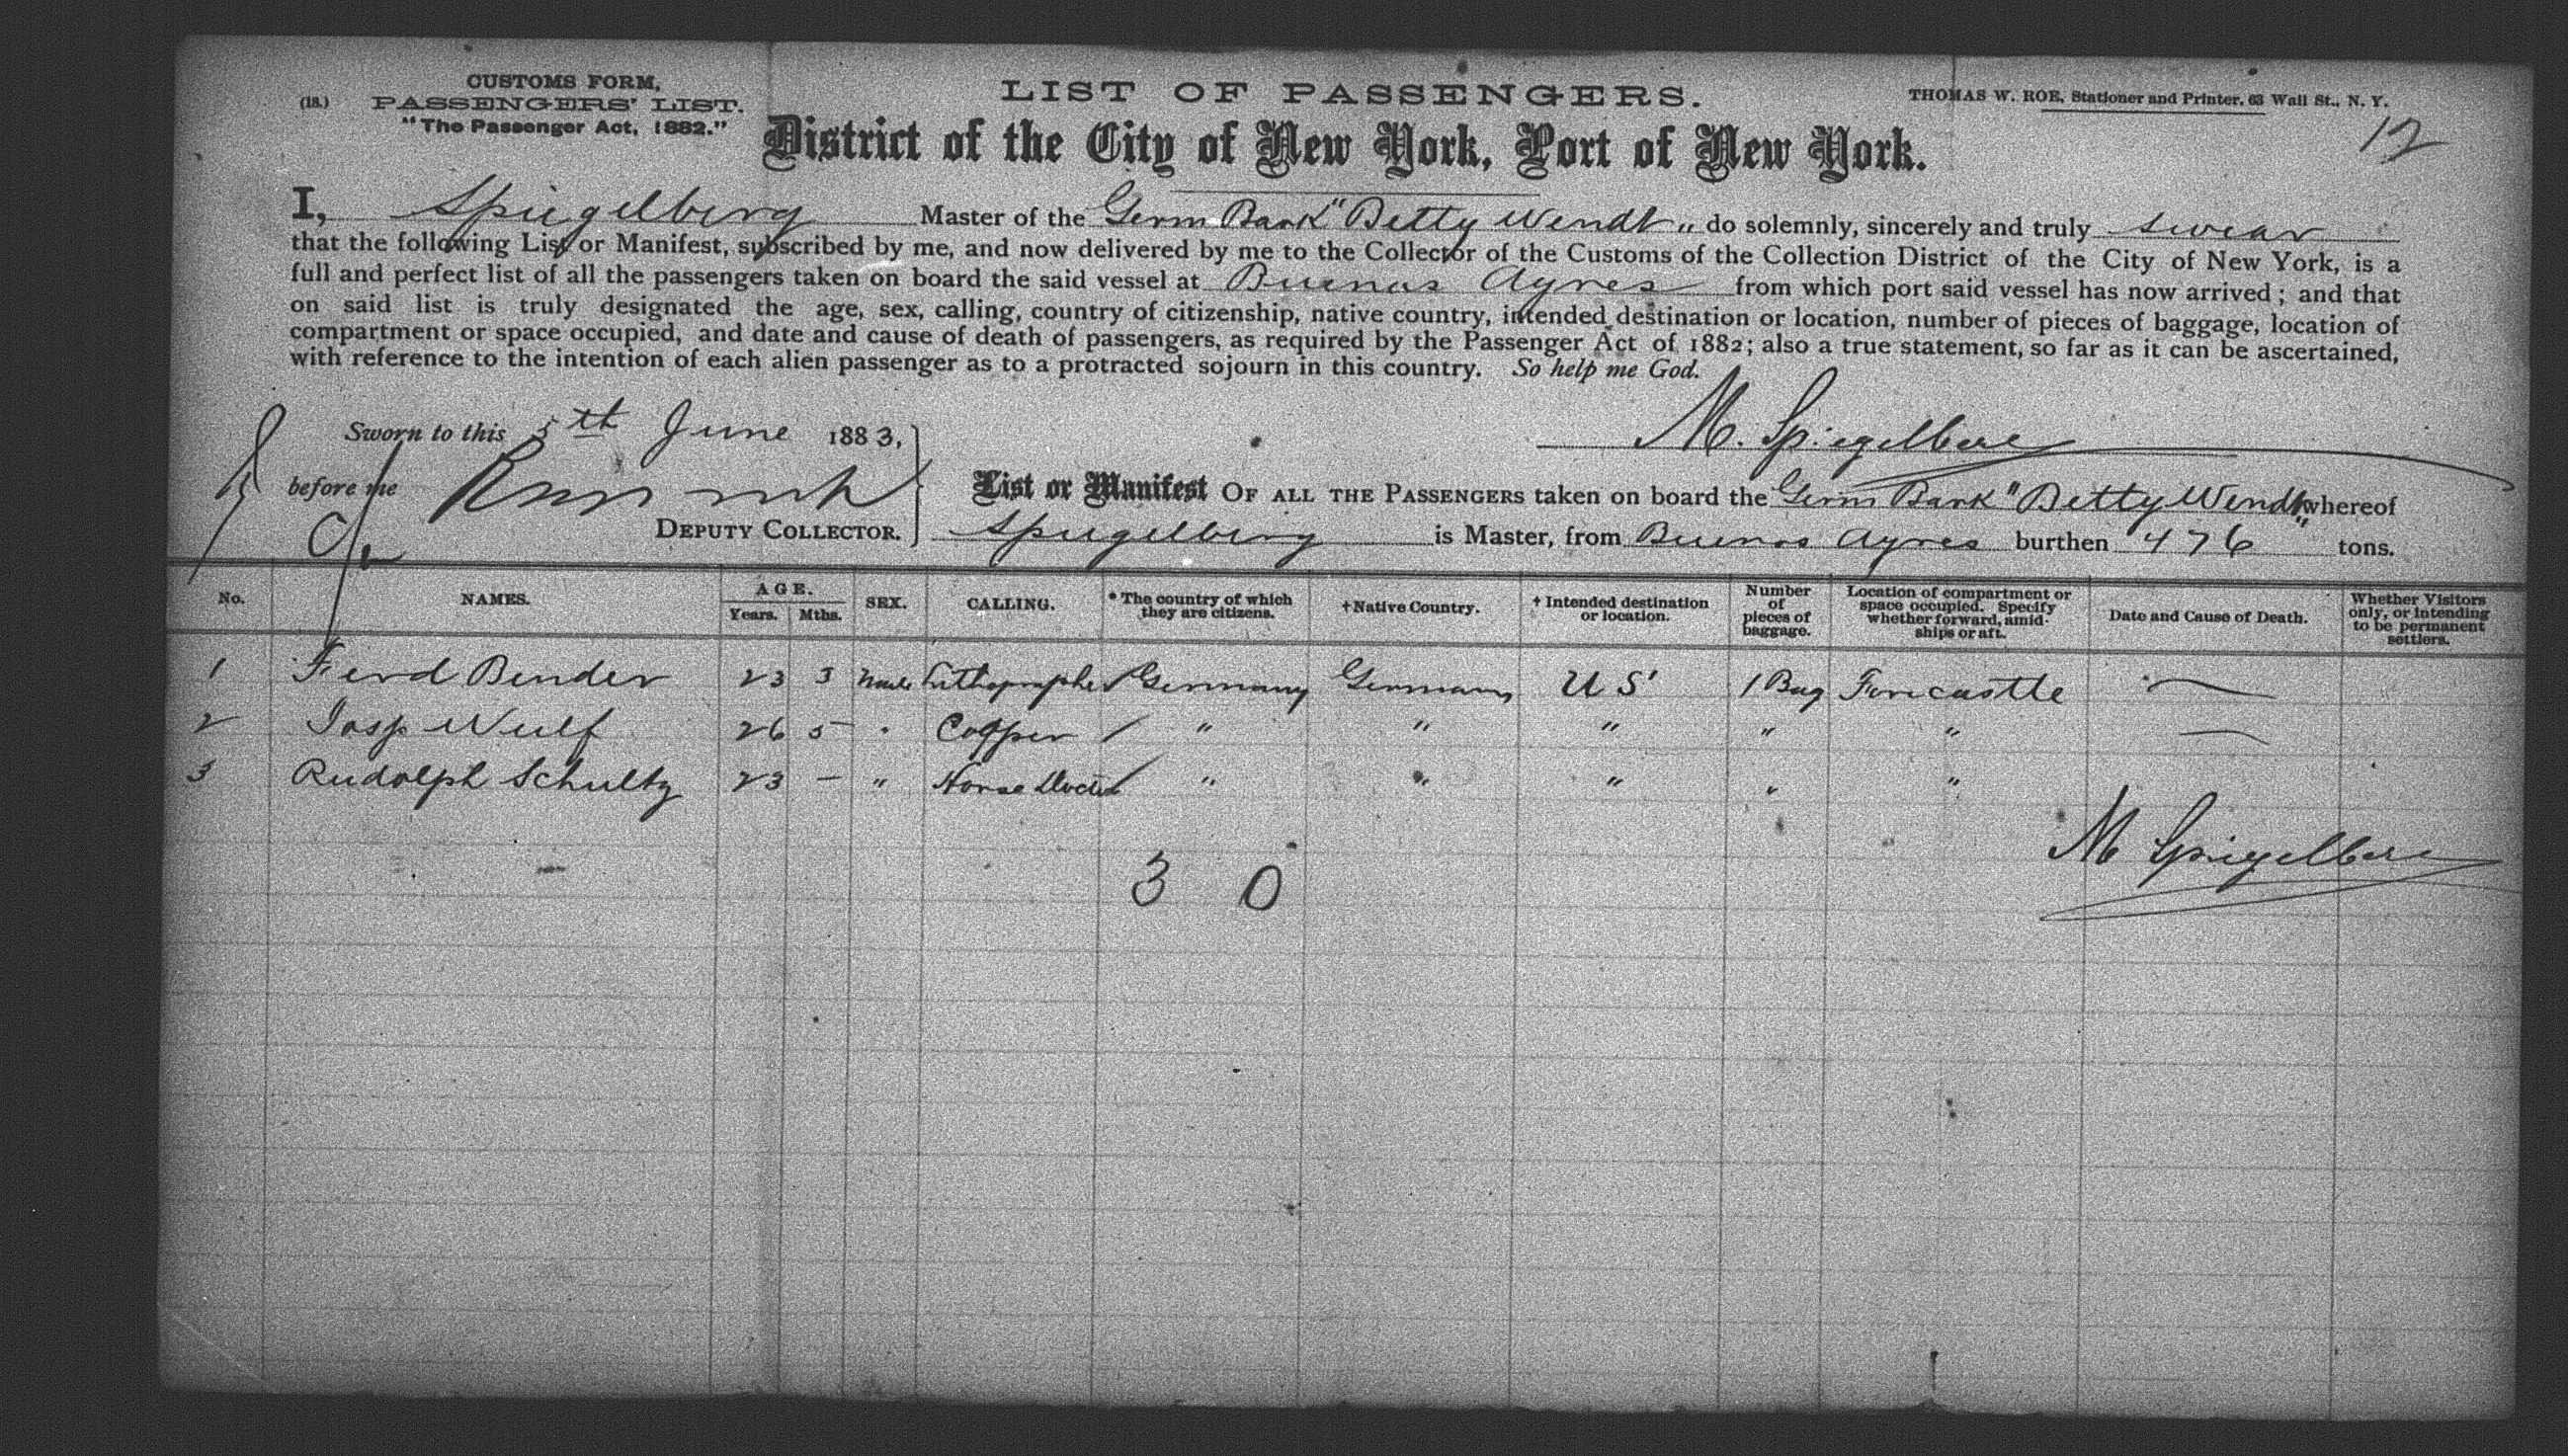 CUSTOMS FORM,
(18.) PASSENGERS' LIST.
"The Passenger Act, 1882."
LIST OF PASSENGERS.
THOMAS W. ROE, Stationer and Printer, 63 Wall St., N. Y.
12
District of the City of New York, Port of New York.
I, Spiegelberg Master of the Germ Bark "Betty Wendt" do solemnly, sincerely and truly swear
that the following List or Manifest, subscribed by me, and now delivered by me to the Collector of the Customs of the Collection District of the City of New York, is a
full and perfect list of all the passengers taken on board the said vessel at Buenos Ayres from which port said vessel has now arrived; and that
on said list is truly designated the age, sex, calling, country of citizenship, native country, intended destination or location, number of pieces of baggage, location of
compartment or space occupied, and date and cause of death of passengers, as required by the Passenger Act of 1882; also a true statement, so far as it can be ascertained,
with reference to the intention of each alien passenger as to a protracted sojourn in this country. So help me God.
Sworn to this 5th June 1883,
M. Spiegelberg
before me
DEPUTY COLLECTOR.
List or Manifest OF ALL THE PASSENGERS taken on board the Germ Bark "Betty Wendt" whereof
Spiegelberg is Master, from Buenos Ayres burthen 476 tons.
No. NAMES. AGE. Years. Mths. SEX. CALLING. * The country of which they are citizens. † Native Country. † Intended destination or location. Number of pieces of baggage. Location of compartment or space occupied. Specify whether forward, amidships or aft. Date and Cause of Death. Whether Visitors only, or intending to be permanent settlers.
1 Ferd Bender 23 3 Male Lithographer / Germany Germany U S 1 Bag Forecastle —
2 Josp Wulf 26 5 " / " " " " " —
3 Rudolph Schultz 23 — " Horse Doctor / " " " " "
M Spiegelberg
3 0